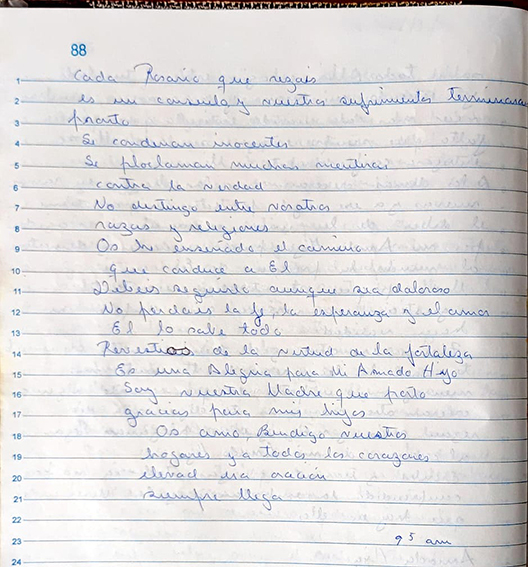 88
1 Cada Rosario que rezais
2 es un consuelo y vuestros sufrimientos terminaran
3 pronto
4 Se condenan inocentes
5 Se ploclaman muchas mentiras
6 contra la verdad
7 No distingo entre vosotros
8 razas y religiones
9 Os he enseñado el camino
10 que conduce a El
11 Debeis seguirlo aunque sea doloroso
12 No perdais la fe, la esperanza y el amor
13 El lo sabe todo
14 Revestios de la virtud de la fortaleza
15 Es una Alegria para Mi Amado Hijo
16 Soy vuestra Madre que porto
17 gracias para mis hijos
18 Os amo, Bendigo vuestros
19 hogares y a todos los corazones
20 elevad esa oración
21 siempre llega
22
23 9 5 am
24